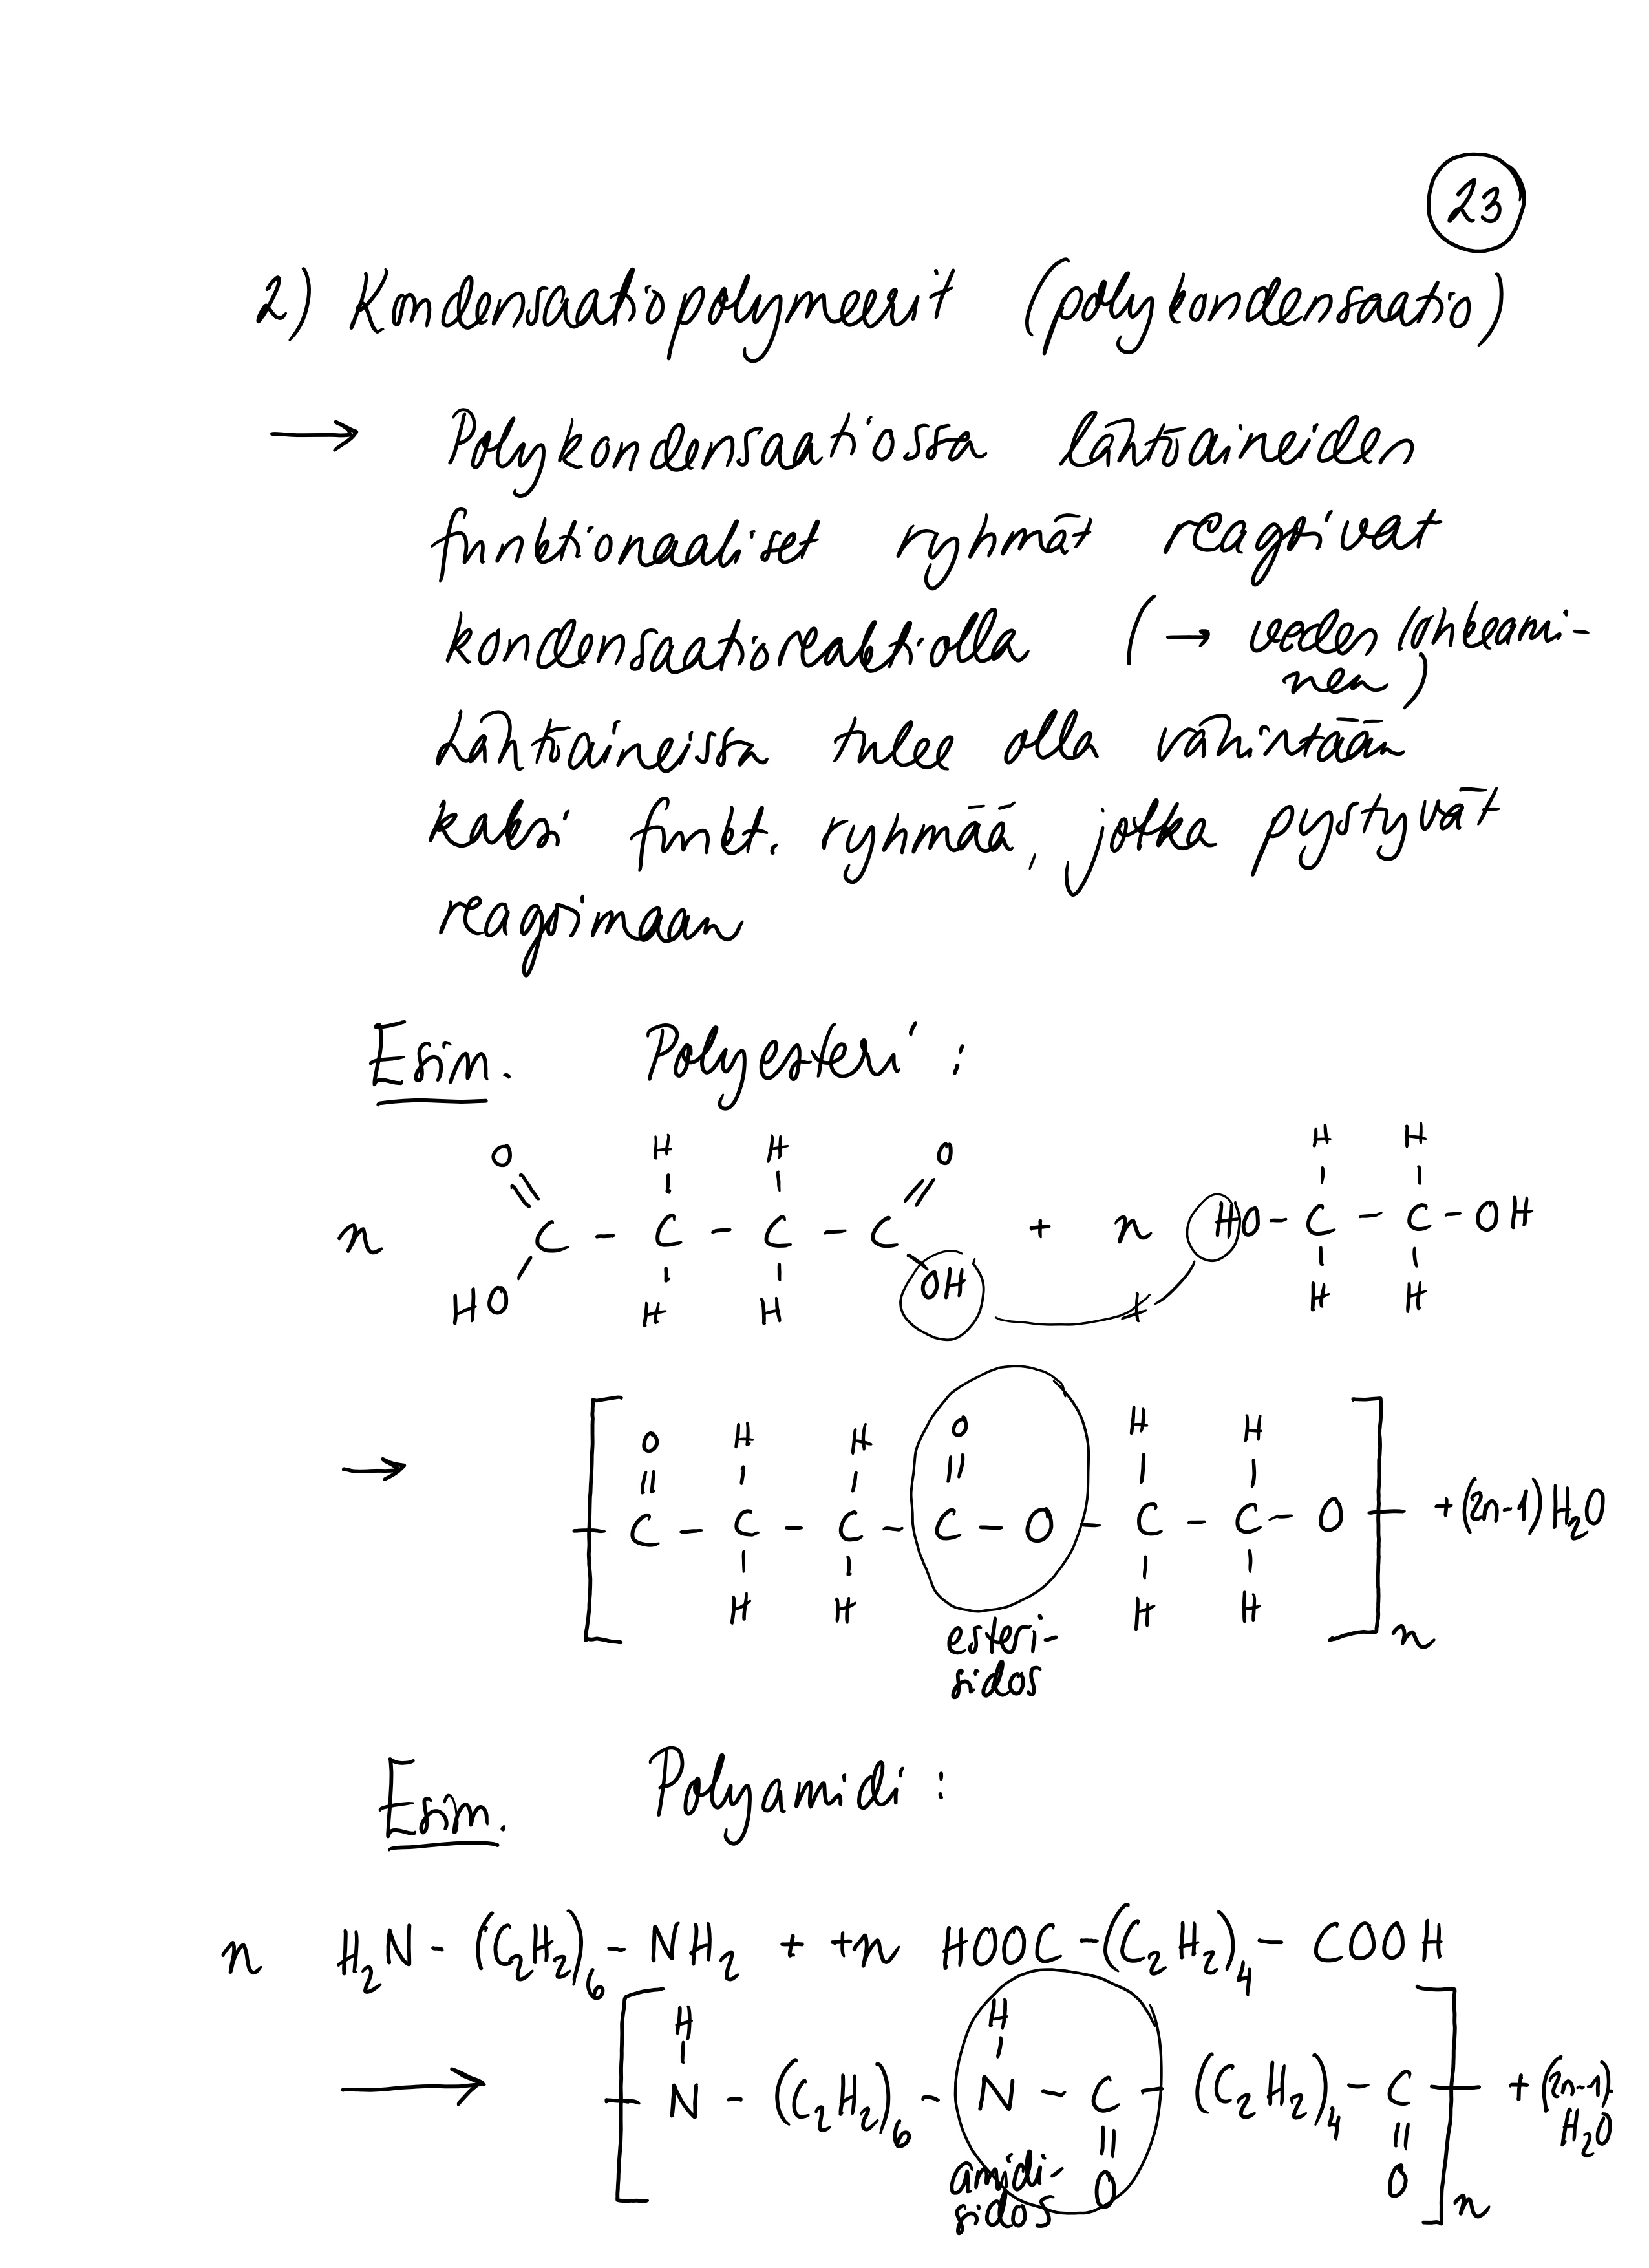 23
2) Kondensaatiopolymeerit (polykondensaatio)
→ Polykondensaatiossa lähtöaineiden
funktionaaliset ryhmät reagoivat
kondensaatioreaktiolla (→ veden lohkeami-
nen)
Lähtöaineissa tulee olla vähintään
kaksi funkt. ryhmää, jotka pystyvät
reagoimaan
Esim. Polyesteri:
O H H O H H
n C - C - C - C + n HO - C - C - OH
HO H H OH + H H
O H H O H H
→ [ C - C - C - C - O - C - C - O ]n + (2n-1) H₂O
H H H H
esteri-
sidos
Esim. Polyamidi:
n H₂N - (C₂H₂)₆ - NH₂ + +n HOOC - (C₂H₂)₄ - COOH
H H
→ [ N - (C₂H₂)₆ - N - C - (C₂H₂)₄ - C ]n + (2n-1)
H₂O
O O
amidi-
sidos